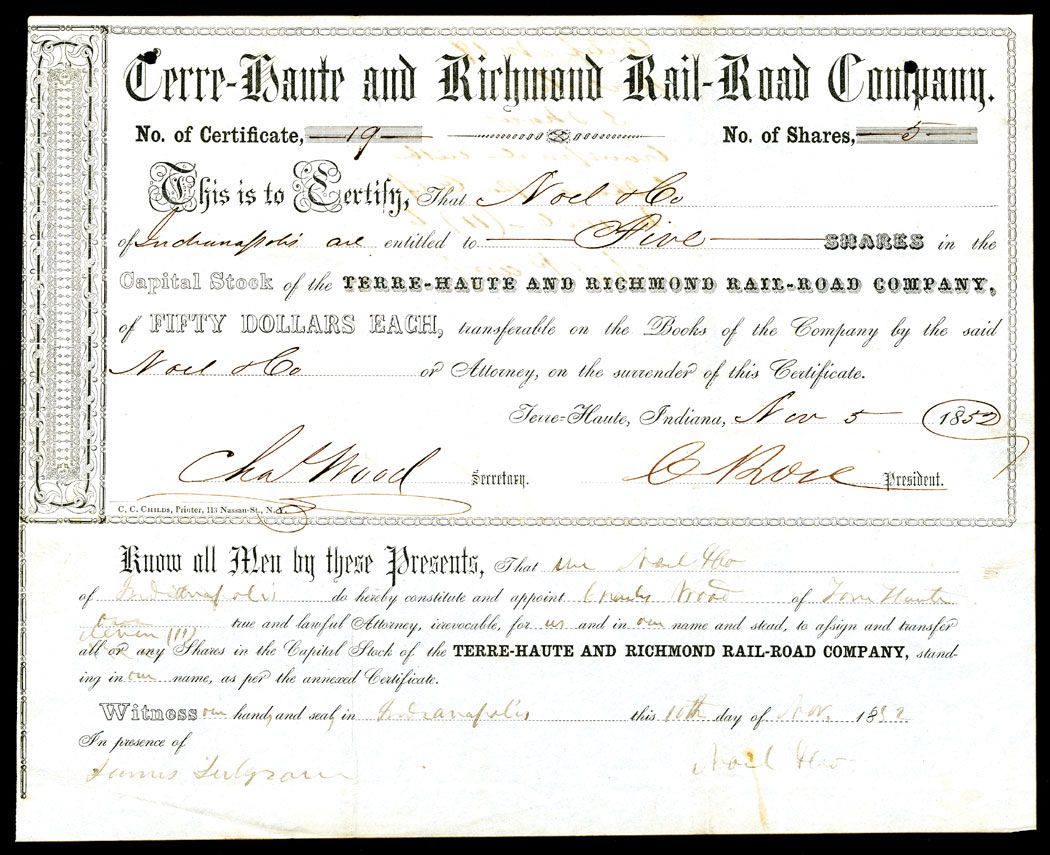 Terre-Haute and Richmond Rail-Road Company.
No. of Certificate, 19 No. of Shares, 5
This is to Certify, That Noel & Co
of Indianapolis are entitled to Five SHARES in the
Capital Stock of the TERRE-HAUTE AND RICHMOND RAIL-ROAD COMPANY,
of FIFTY DOLLARS EACH, transferable on the Books of the Company by the said
Noel & Co or Attorney, on the surrender of this Certificate.
Terre-Haute, Indiana, Nov 5 1852
Chas Wood Secretary. C Rose President.
C. C. CHILDS, Printer, 113 Nassau-St., N.Y.
Know all Men by these Presents, That we Noel & Co
of Indianapolis do hereby constitute and appoint Charles Wood of Terre Haute
true and lawful Attorney, irrevocable, for us and in our name and stead, to assign and transfer
all or any Shares in the Capital Stock of the TERRE-HAUTE AND RICHMOND RAIL-ROAD COMPANY, stand-
ing in our name, as per the annexed Certificate.
Witness our hand and seal, in Indianapolis this 10th day of Nov. 1852
In presence of
James Noel & Co